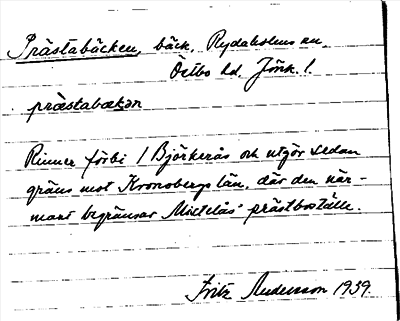 Prästabäcken, bäck, Rydaholms sn,
Östbo hd, Jönk. l.
præstabækan
Rinner förbi / Björkerås och utgör sedan
gräns mot Kronobergs län, där den när-
mast begränsar Mistelås prästboställe.
Fritz Andersson 1939.